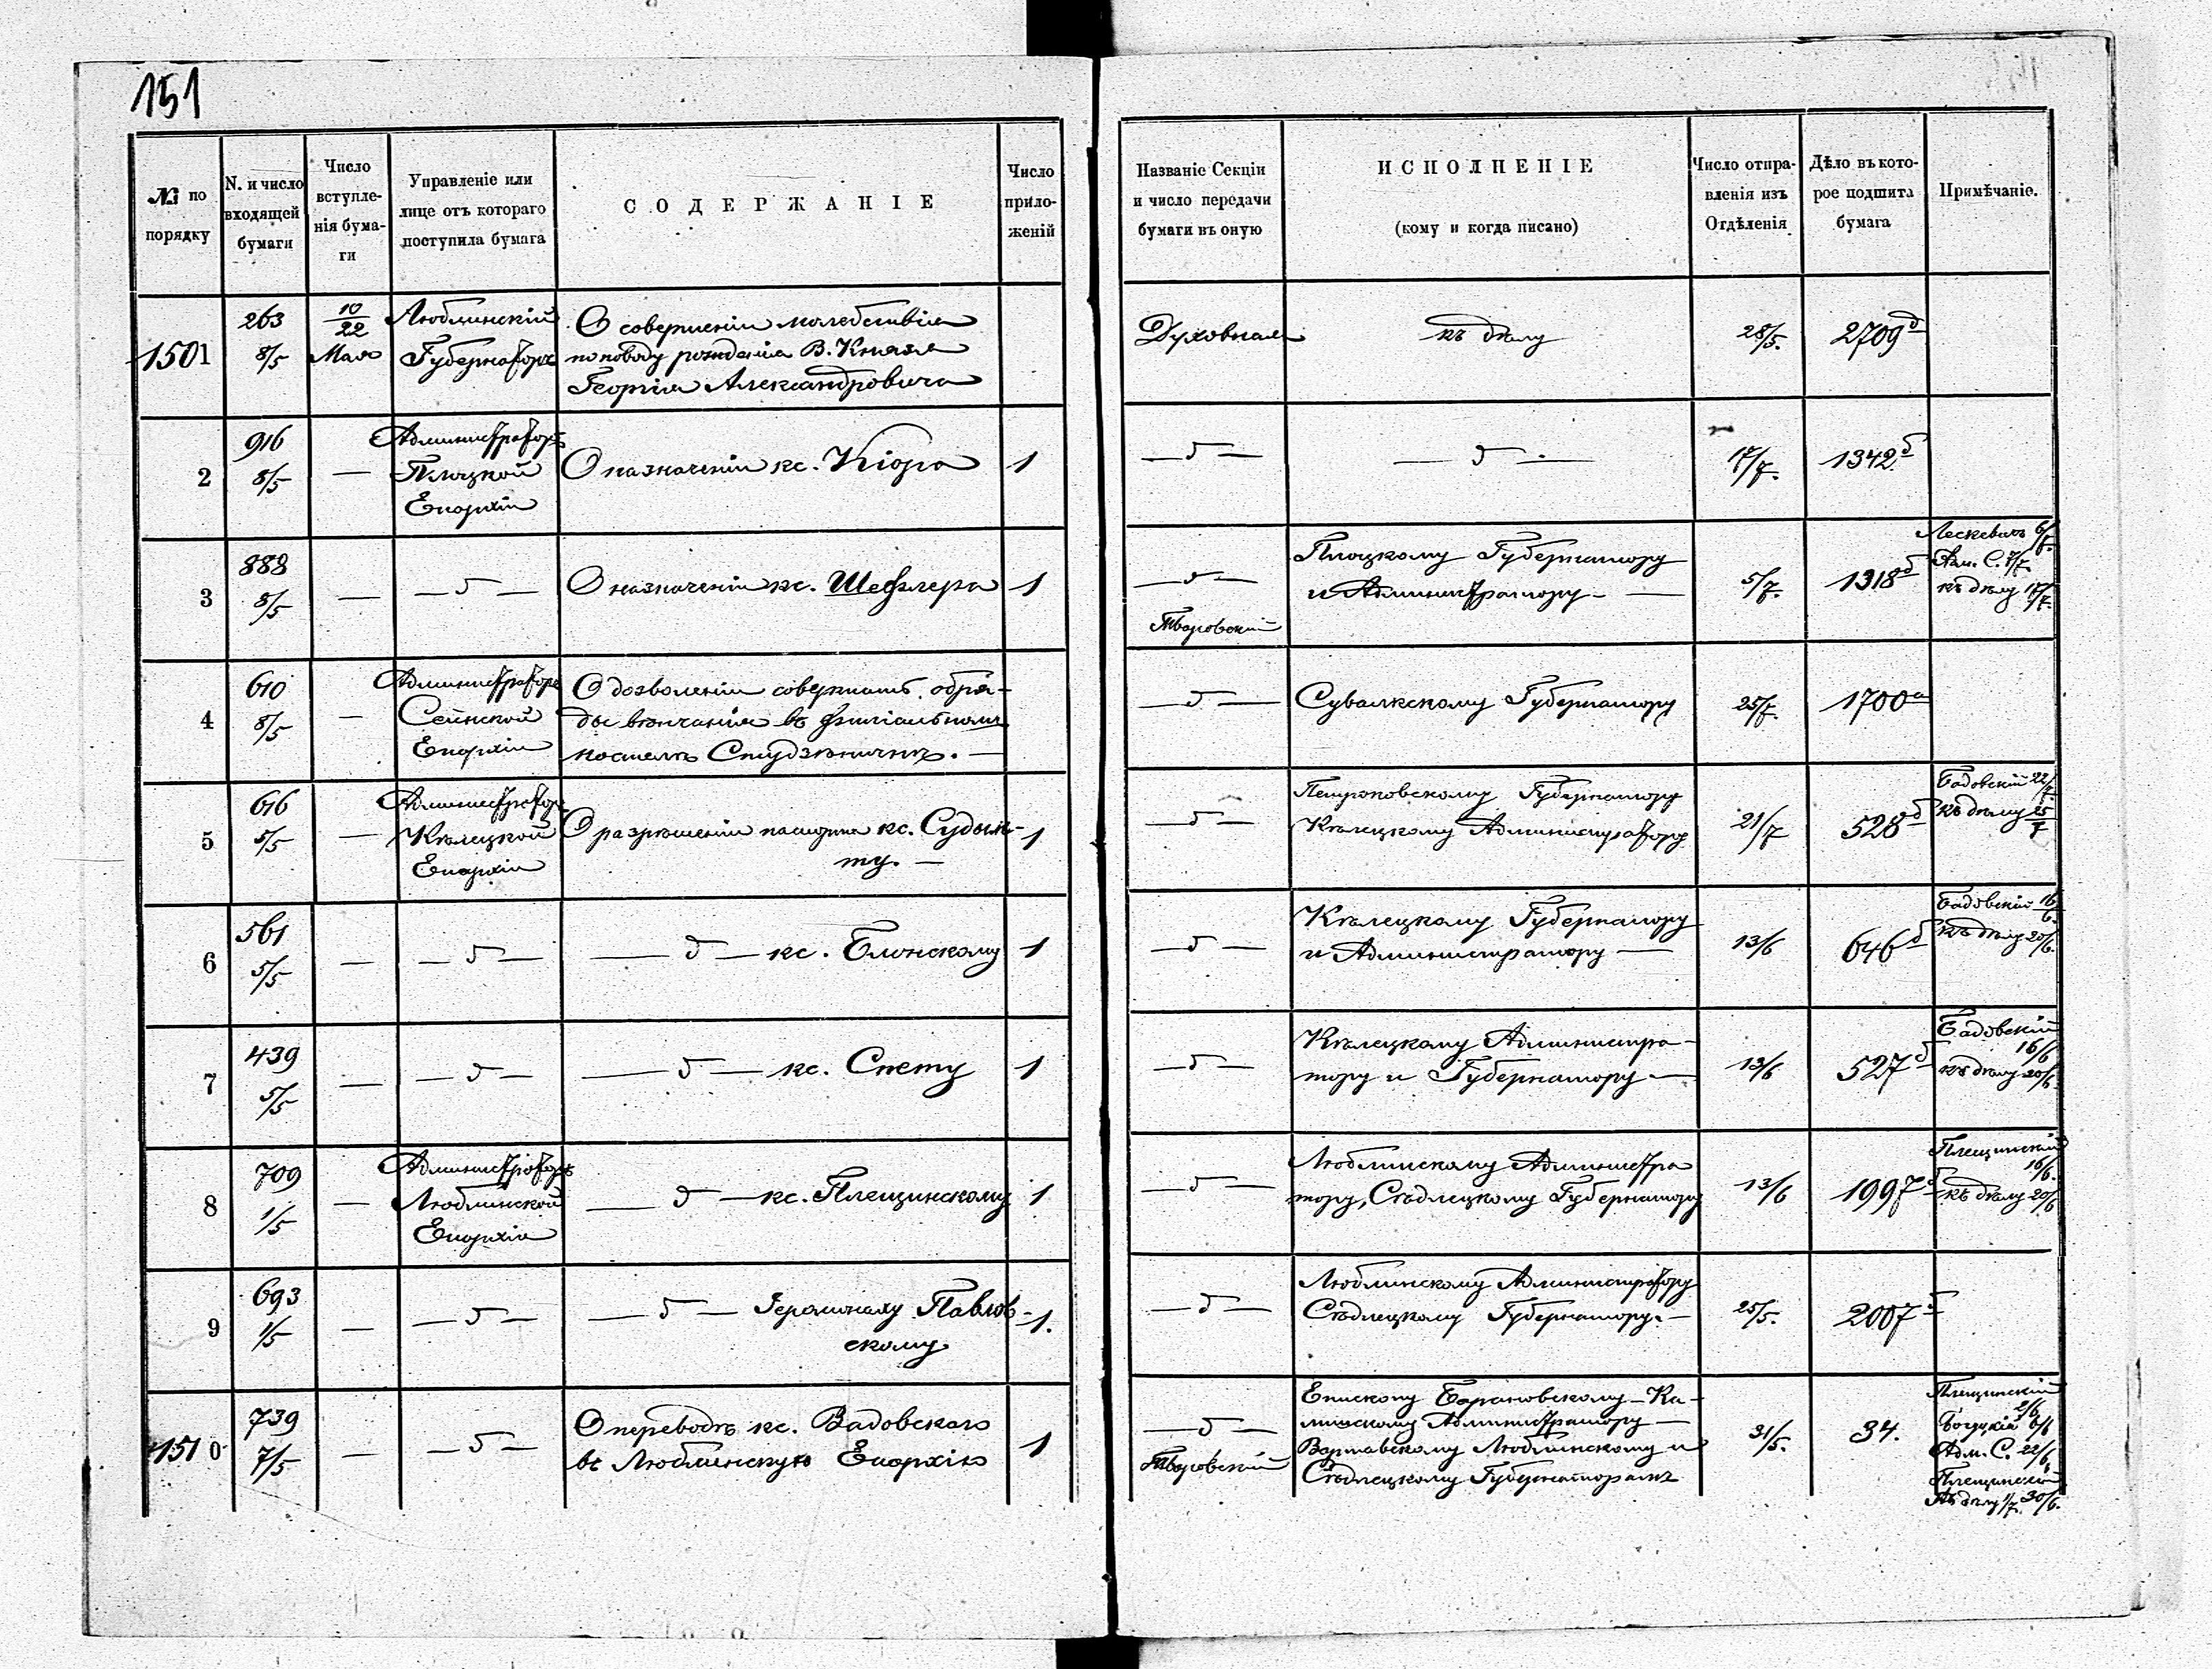 151
№ по порядку
N. и число входящей бумаги
Число вступле-нія бума-ги
Управленіе или лице отъ котораго поступила бумага
СОДЕРЖАНІЕ
Число прило-женій
Названіе Секціи и число передачи бумаги въ оную
ИСПОЛНЕНІЕ
(кому и когда писано)
Число отпра-вленія изъ Отдѣленія
Дѣло въ кото-рое подшита бумага
Примѣчаніе.
1501
263
8/5
10/22
Мая
Люблинскій
Губернаторъ
О совершеніи молебствія
по поводу рожденія В. Князя
Георгія Александровича
Духовная
къ дѣлу
28/5.
2709 д
2
916
8/5
—
Администраторъ
Плоцкой
Епархіи
О назначеніи кс. Кіора
1
— д —
— д —
17/7.
1342 б
3
888
8/5
—
— д —
О назначеніи кс. Шефлера
1
— д —
Творовскій
Плоцкому Губернатору
и Администратору —
5/7.
1318 б
Адм. С. 7/7.
къ дѣлу 17/7.
4
610
8/5
—
Администраторъ
Сейнской
Епархіи
О дозволеніи совершать обря-
ды вѣнчанія въ филіальномъ
костелѣ Студзѣничнѣ. —
— д —
Сувалкскому Губернатору
25/7.
1700 а
5
616
5/5
—
Администраторъ
Кѣлецкой
Епархіи
О разрѣшеніи паспорта кс.
ту. —
1
— д —
Петроковскому Губернатору
Кѣлецкому Администратору
21/7
528 б
Бадовскій 22/7
къ дѣлу 25/7
6
561
5/5
—
— д —
— д — кс. Блонскому
1
— д —
Кѣлецкому Губернатору
и Администратору —
13/6
646 б
Бадовскій 16/6.
къ дѣлу 20/6.
7
439
5/5
—
— д —
— д — кс. Спету
1
— д —
Кѣлецкому Администра-
тору и Губернатору —
13/6
527 б
Бадовскій
16/6
къ дѣлу 20/6.
8
709
1/5
—
Администраторъ
Люблинской
Епархіи
— д — кс. Плещинскому
1
— д —
Люблинскому Администра
тору, Сѣдлецкому Губернатору
13/6
1997 б
Плещинскій
16/6.
къ дѣлу 20/6
9
693
1/5
—
— д —
— д — Іеромонаху Павлов-
скому
1.
— д —
Люблинскому Администратору
Сѣдлецкому Губернатору. —
25/5.
2007 б
1510
739
7/5
—
— д —
О переводѣ кс. Вадовскаго
въ Люблинскую Епархію
1
— д —
Творовскій
Епископу Барановскому — Ка-
лишскому Администратору —
Варшавскому Люблинскому и
Сѣдлецкому Губернаторамъ
31/5.
34.
Плещинскій
2/6
6/6
Адм. С. 22/6
Плещинскій
къ дѣлу 1/7. 30/6.